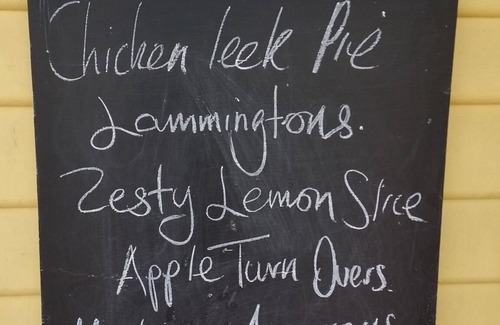 Chicken leek Pie
Lammingtons.
Zesty Lemon Slice
Apple Turn Overs.